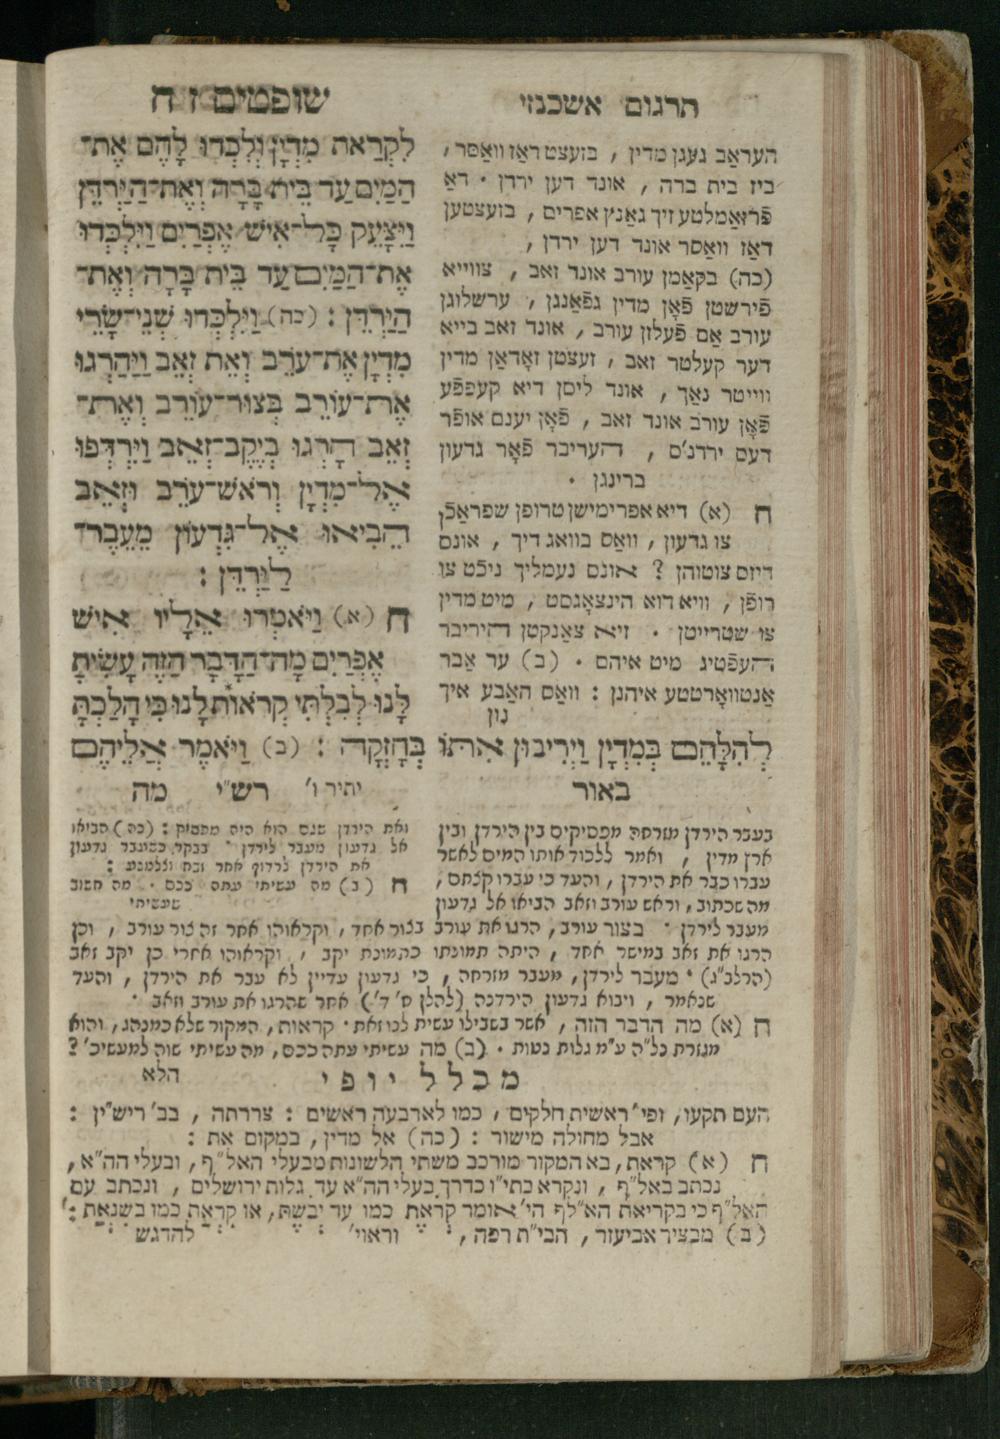 תרגום אשכנזי
שופטים ז ח
העראַב געגן מדין , בזעצט ראַז וואַסר ,
ביז בית ברה , אונד דען ירדן · דאַ
פֿרזאַמלטע זיך גאַנץ אפרים , בזעצטען
דאַז וואַסר אונד דען ירדן ,
(כה) בקאַמן עורב אונד זאב , צווייא
פֿירשטן פֿאָן מדין גפֿאַנגן , ערשלוגן
עורב אַם פֿעלזן עורב , אונד זאב בייא
דער קעלטר זאב , זעצטן זאָדאַן מדין
ווייטר נאַך , אונד ליסן דיא קעפפֿע
פֿאָן עורב אונד זאב , פֿאָן יענם אופֿר
דעם ירדנ'ס , העריבר פֿאָר גדעון
ברינגן .
ח (א) דיא אפרימישן טרופן שפראַכֿן
צו גדעון , וואַס בוואג דיך , אונס
דיזס צוטוהן ? אונס נעמליך ניכֿט צו
רופֿן , וויא דוא הינצאָגסט , מיט מדין
צו שטרייטן · זיא צאַנקטן היריבר
העפֿטיג מיט איהם · (ב) ער אַבר
אַנטוואָרטטע איהנן : וואַס האַבע איך
נון
לִקְרַאת מִדְיָן וְלִכְדוּ לָהֶם אֶת־
הַמַּיִם עַד בֵּית בָּרָה וְאֶת־הַיַּרְדֵּן
וַיִּצָּעֵק כָּל־אִישׁ אֶפְרַיִם וַיִּלְכְּדוּ
אֶת־הַמַּיִם עַד בֵּית בָּרָה וְאֶת־
הַיַּרְדֵּן : (כה) וַיִּלְכְּדוּ שְׁנֵי־שָׂרֵי
מִדְיָן אֶת־עֹרֵב וְאֶת זְאֵב וַיַּהַרְגוּ
אֶת־עוֹרֵב בְּצוּר־עוֹרֵב וְאֶת־
זְאֵב הָרְגוּ בְיֶקֶב־זְאֵב וַיִּרְדְּפוּ
אֶל־מִדְיָן וְרֹאשׁ־עֹרֵב וּזְאֵב
הֵבִיאוּ אֶל־גִּדְעוֹן מֵעֵבֶר־
לַיַּרְדֵּן :
ח (א) וַיֹּאמְרוּ אֵלָיו אִישׁ
אֶפְרַיִם מָה־הַדָּבָר הַזֶּה עָשִׂיתָ
לָּנוּ לְבִלְתִּי קְרֹאות לָנוּ כִּי הָלַכְתָּ
לְהִלָּחֵם בְּמִדְיָן וַיְרִיבוּן אִתּוֹ בְּחָזְקָה : (ב) וַיֹּאמֶר אֲלֵיהֶם
באור
יתיר ו' רש״י מה
בעבר הירדן מזרחה מפסיקים בין הירדן ובין
ארץ מדין , ואמר ללכוד אותו המים לאשר
עברו כבר את הירדן , והעד כי עברו קצתם ,
מה שכתוב , וראש עורב וזאב הביאו אל גדעון
ואת הירדן שגם הוא היה מפסוק : (כה) הביאו
אל גדעון מעבר לירדן · בבקר כשעבר גדעון
את הירדן לרדוף אחר זבח וצלמנע :
ח (ב) מה עשיתי עתה ככם · מה חשוב
שעשיתי
מעבר לירדן · בצור עורב , הרגו את עורב בצור אחד , וקראוהו אחר זה צור עורב , וכן
הרגו את זאב במישר אחד , היתה תמונתו כתמונת יקב , וקראוהו אחרי כן יקב זאב
(הרלב״ג) · מעבר לירדן , מעבר מזרחה , כי גדעון עדיין לא עבר את הירדן , והעד
שנאמר , ויבוא גדעון הירדנה (להלן ס' ד') אחר שהרגו את עורב וזאב .
ח (א) מה הדבר הזה , אשר בשבילו עשית לנו זאת · קראות , המקור שלא כמנהג , והוא
מגזרת נל״ה ע״מ גלות בטות . (ב) מה עשיתי עתה ככם , מה עשיתי שוה למעשיכ' ?
מכלל יופי הלא
העם תקעו , ופי' ראשית חלקים , כמו לארבעה ראשים : צררתה , בב' ריש״ין :
אבל מחולה מישור : (כה) אל מדין , במקום את :
ח (א) קראת , בא המקור מורכב משתי הלשונות מבעלי האל״ף , ובעלי הה״א ,
נכתב באל״ף , ונקרא בתי״ו כדרך בעלי הה״א עד גלות ירושלים , ונכתב עם
האל״ף כי בקריאת הא״לף הי' אומר קְרֹאֶת כמו עד יְבֹשֶׁת , או קְרָאַת כמו בשִנאַת :
(ב) מבציר אביעזר , הבי״ת רפה , וראוי' להדגש